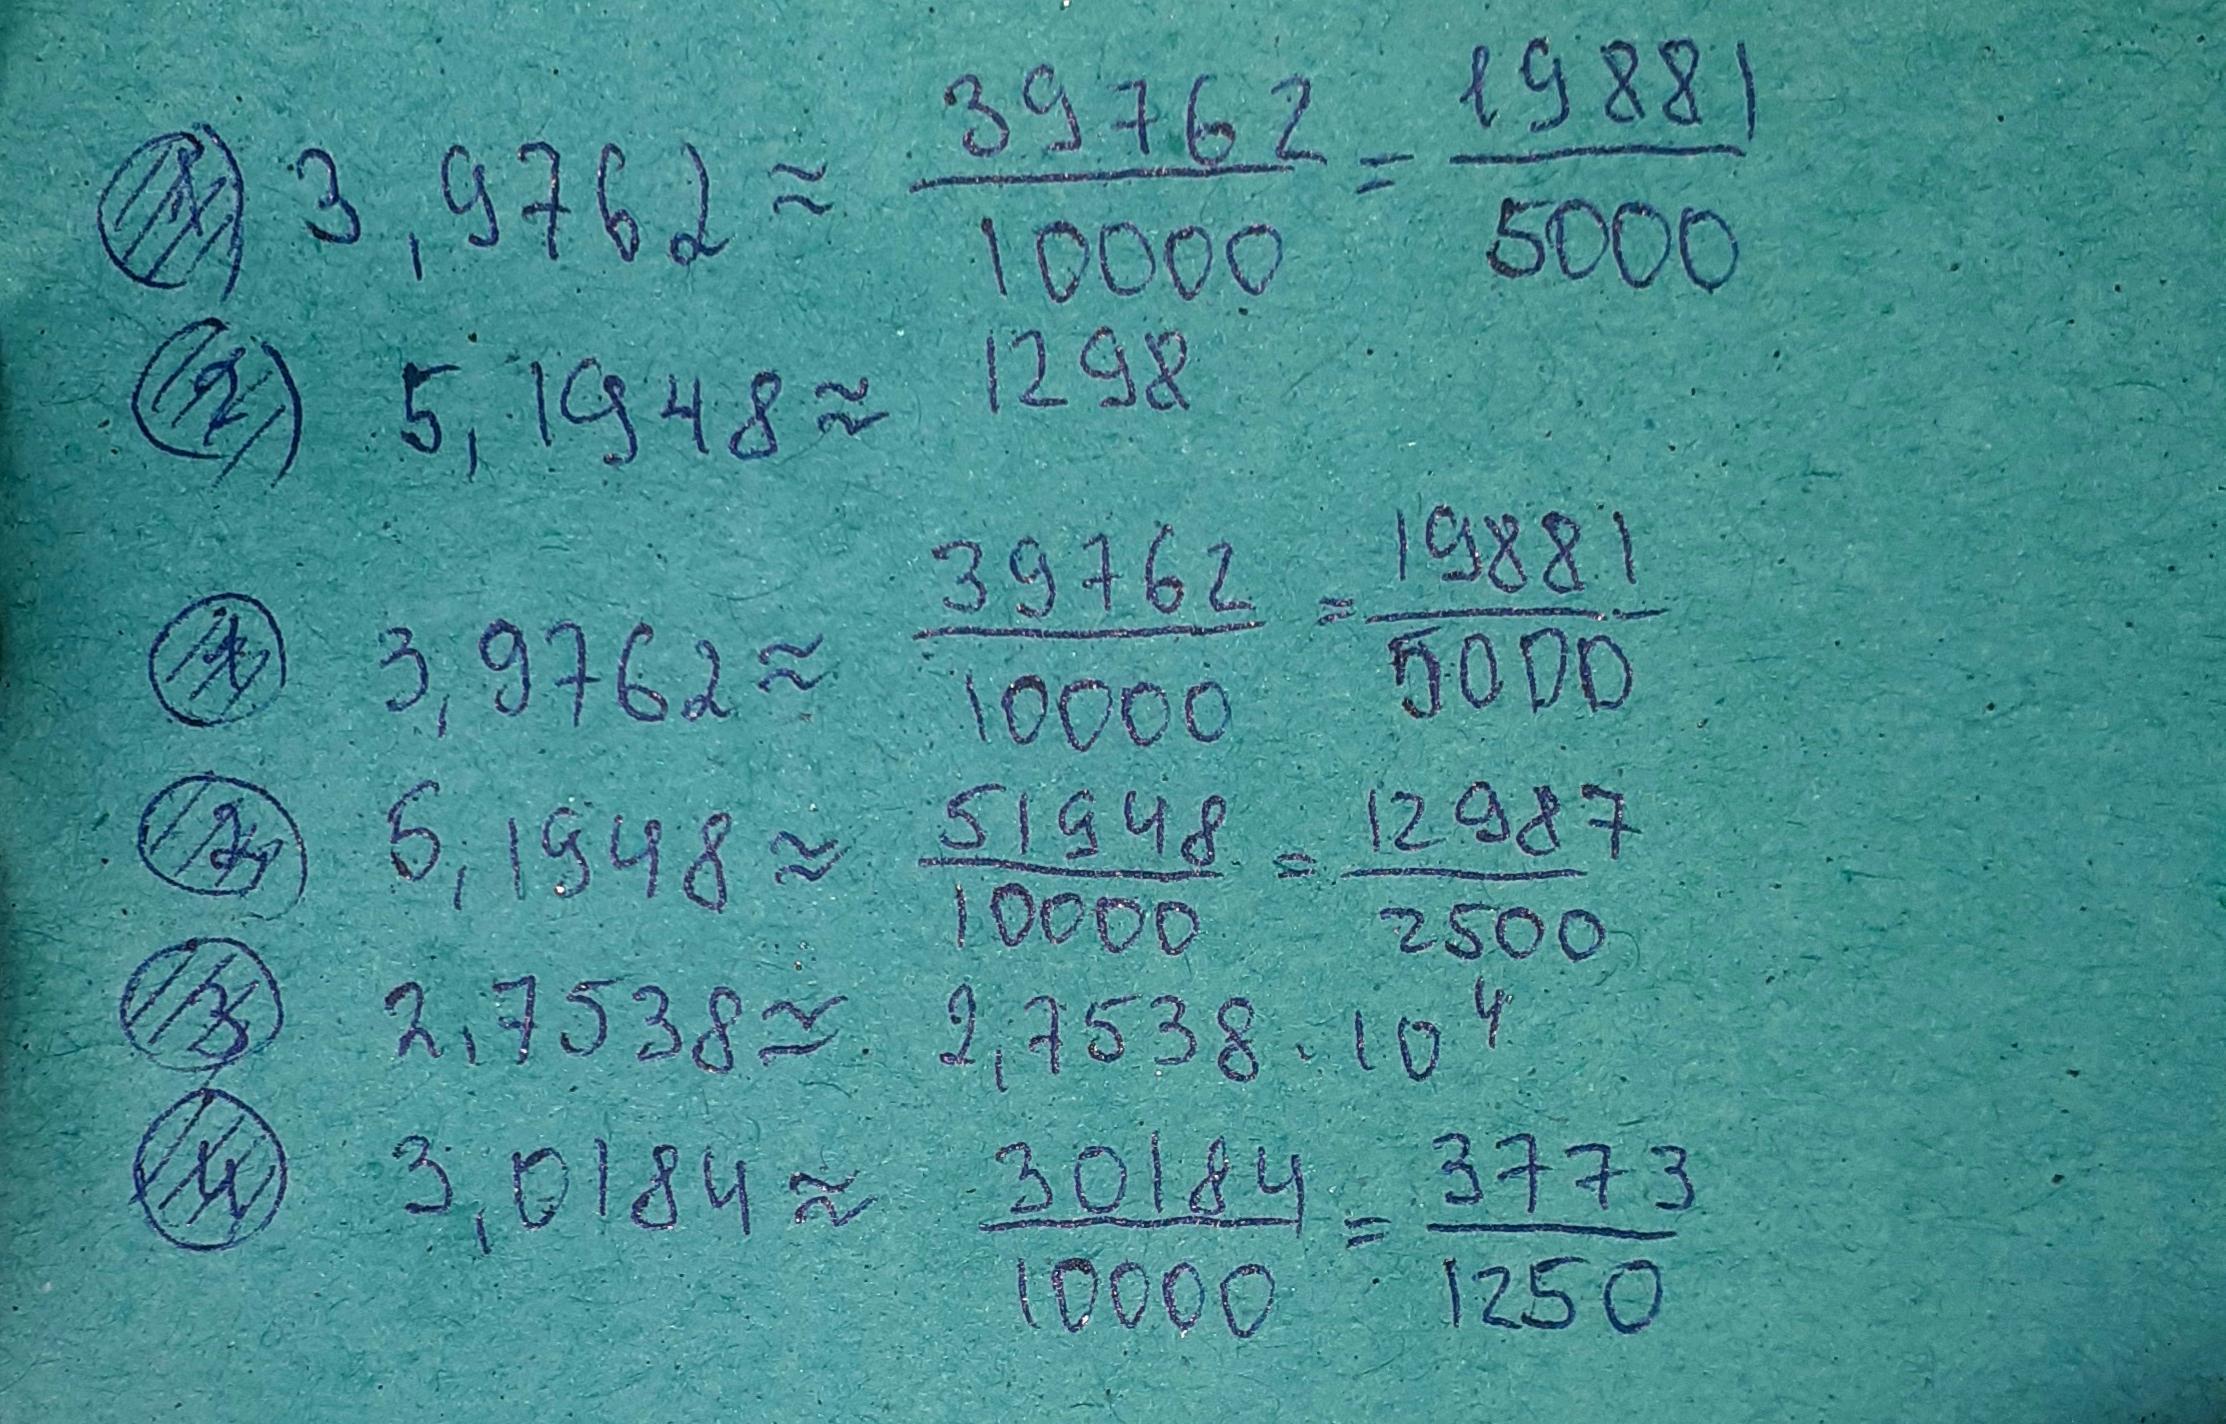 1 3,9762 ≈ 39762/10000 = 19881/5000
2 5,1948 ≈ 1298
1 3,9762 ≈ 39762/10000 = 19881/5000
2 5,1948 ≈ 51948/10000 = 12987/2500
3 2,7538 ≈ 2,7538 · 10⁴
4 3,0184 ≈ 30184/10000 = 3773/1250